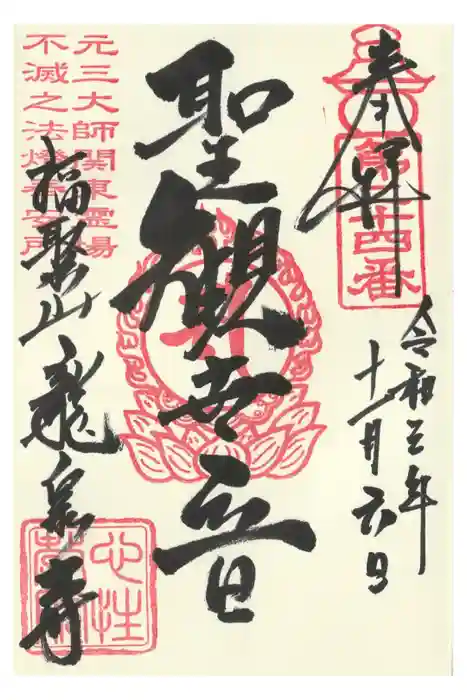 奉拝
第廿四番
令和三年
十一月六日
聖観世音
元三大師関東霊場
不滅之法燈奉安所
福聚山龍泉寺
心性